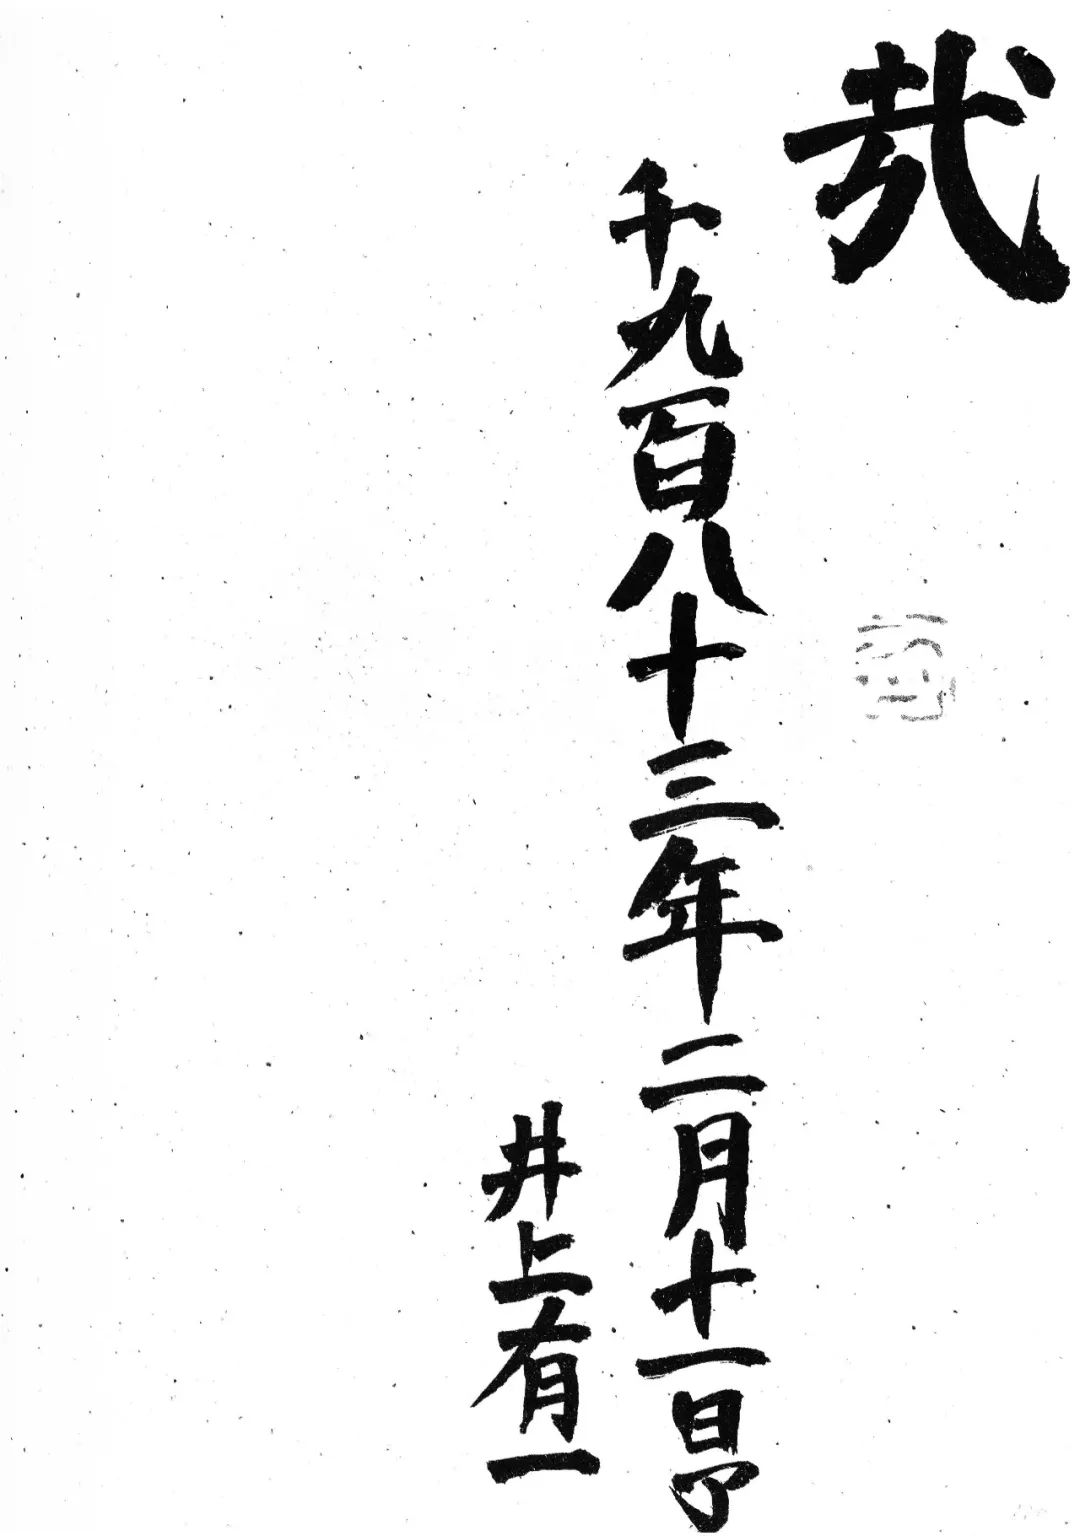 哉
千九百八十三年二月十一日了
井上有一